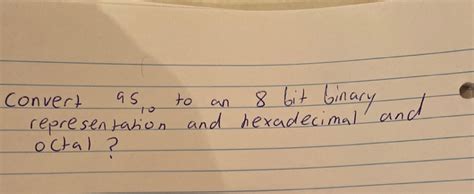 Convert 95₁₀ to an 8 bit binary
representation and hexadecimal and
octal ?